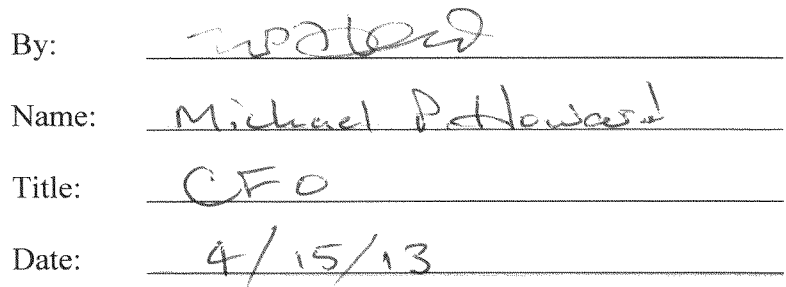 By:
Name: Michael P. Howard
Title: CFO
Date: 4/15/13